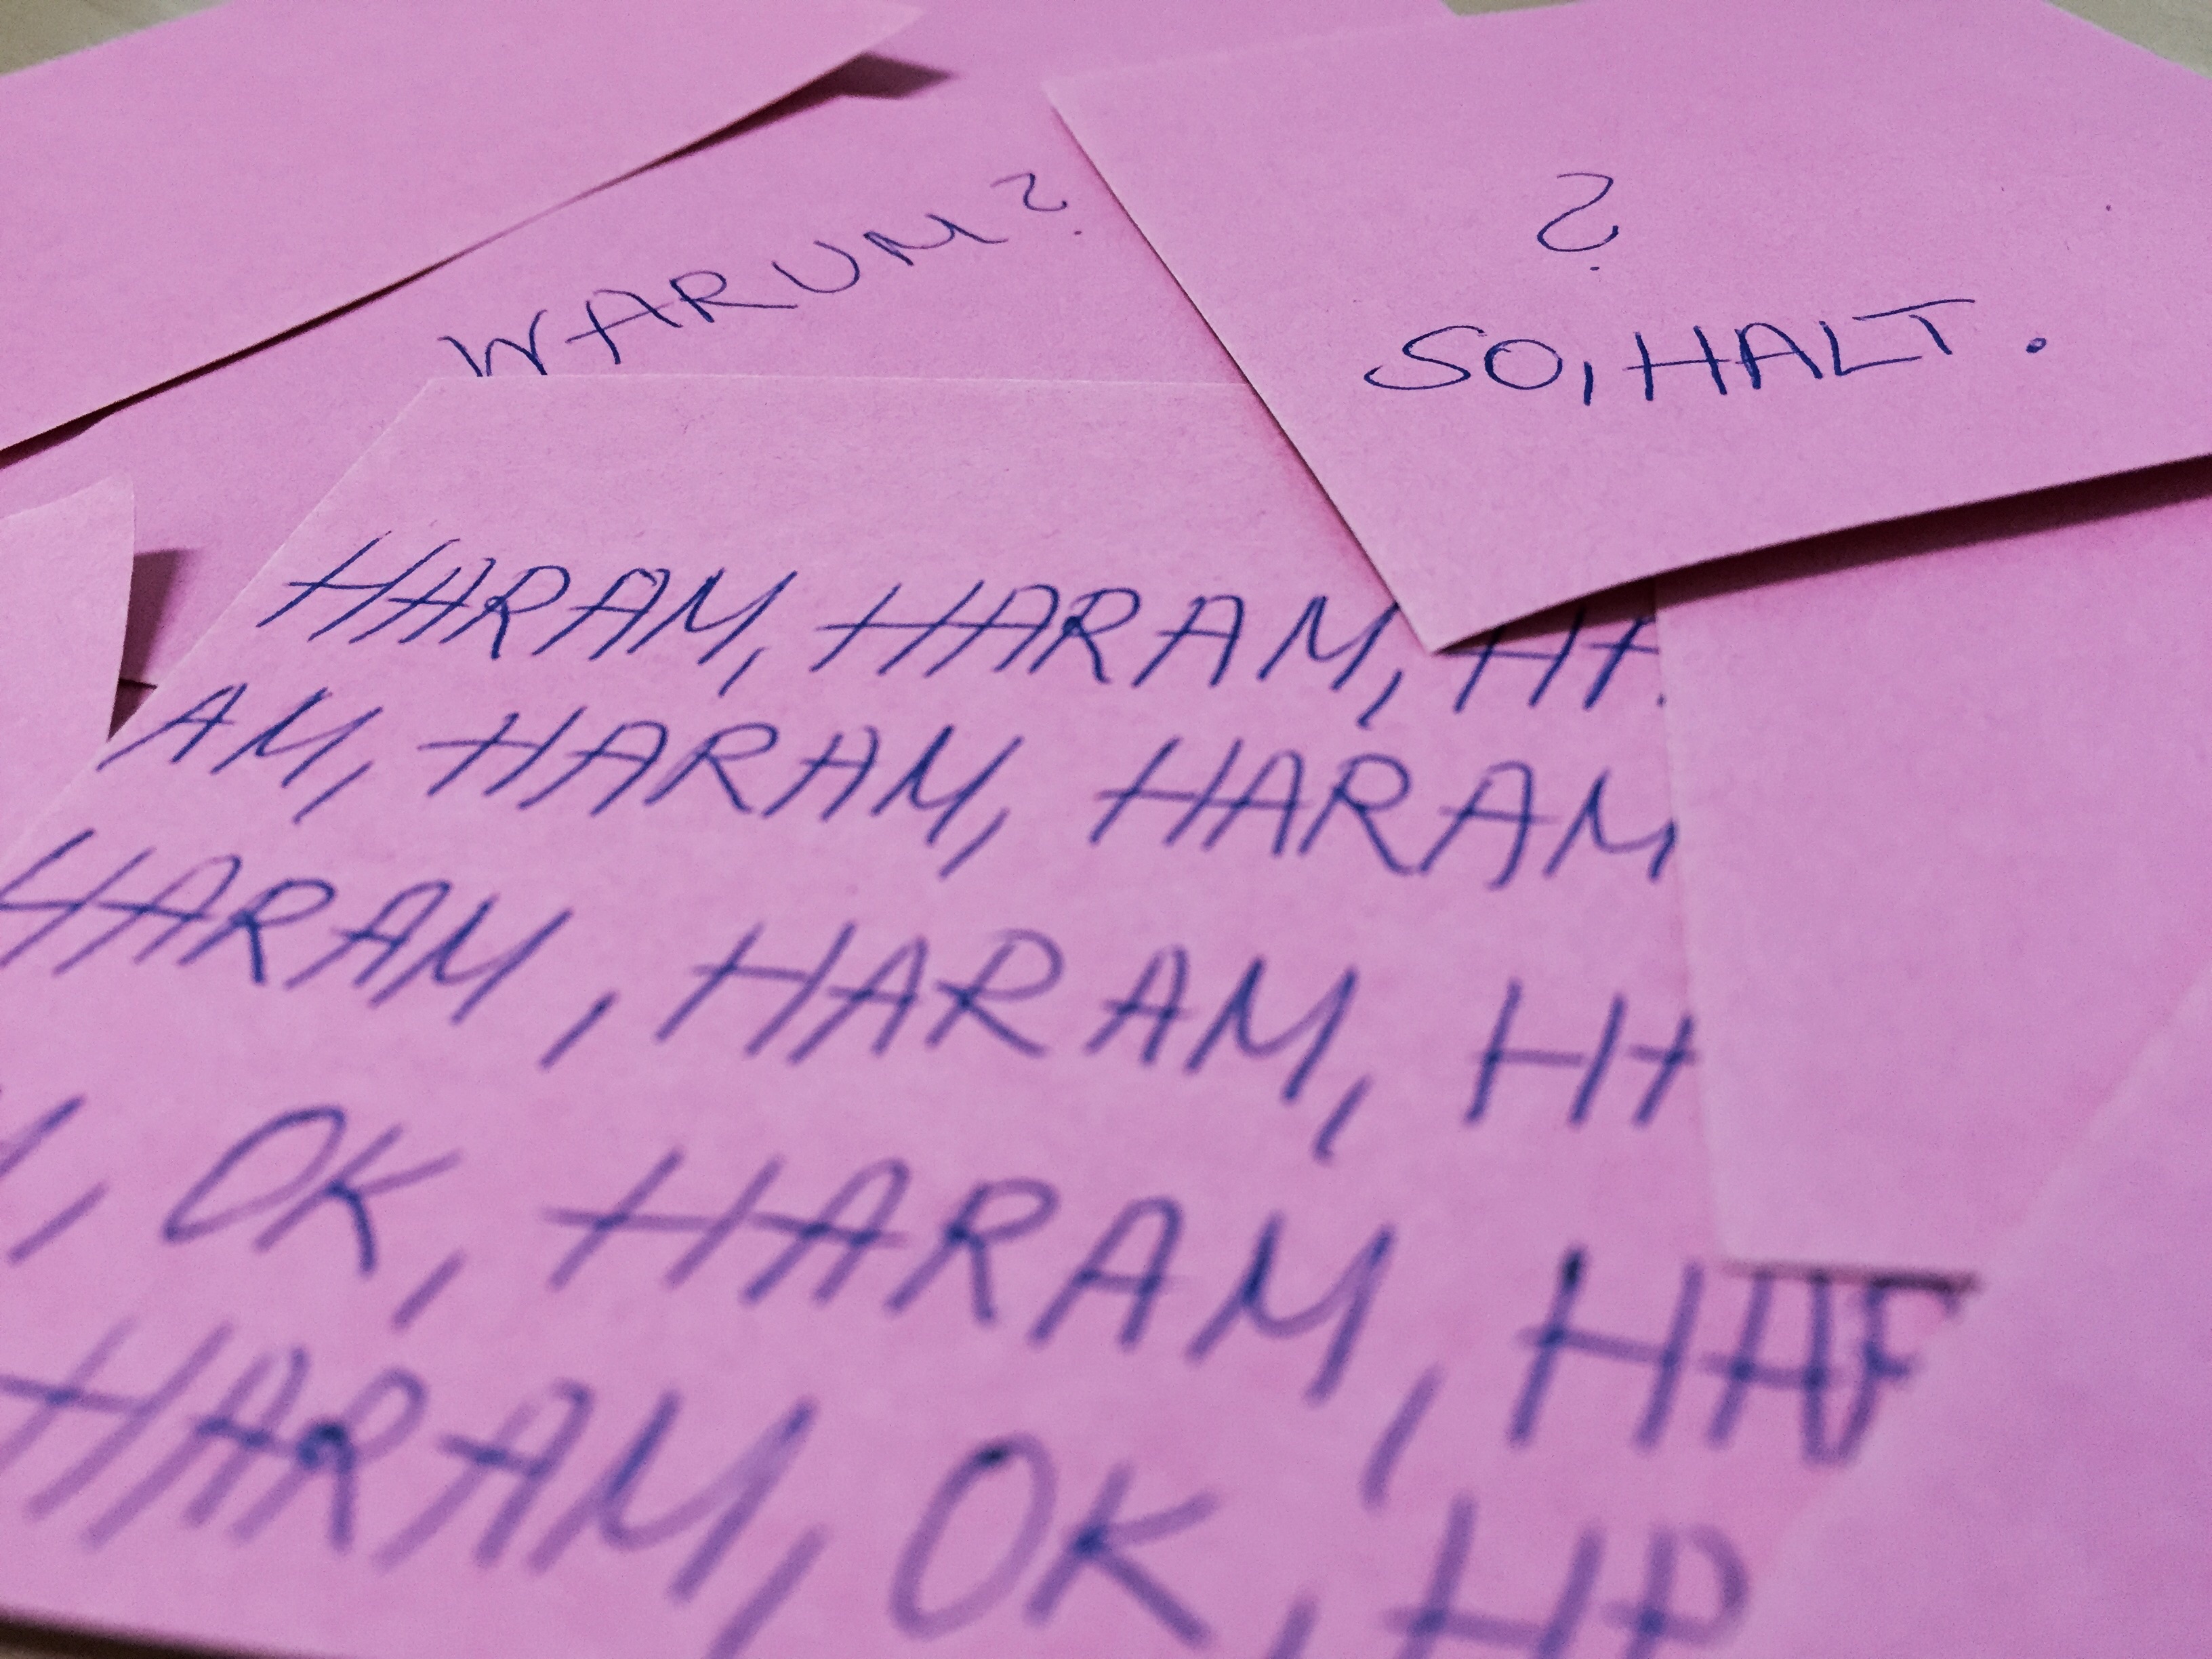 WARUM?
?
SO, HALT.
HARAM, HARAM,
AM, HARAM, HARAM
HARAM, HARAM,
, OK, HARAM,
HARAM, OK,